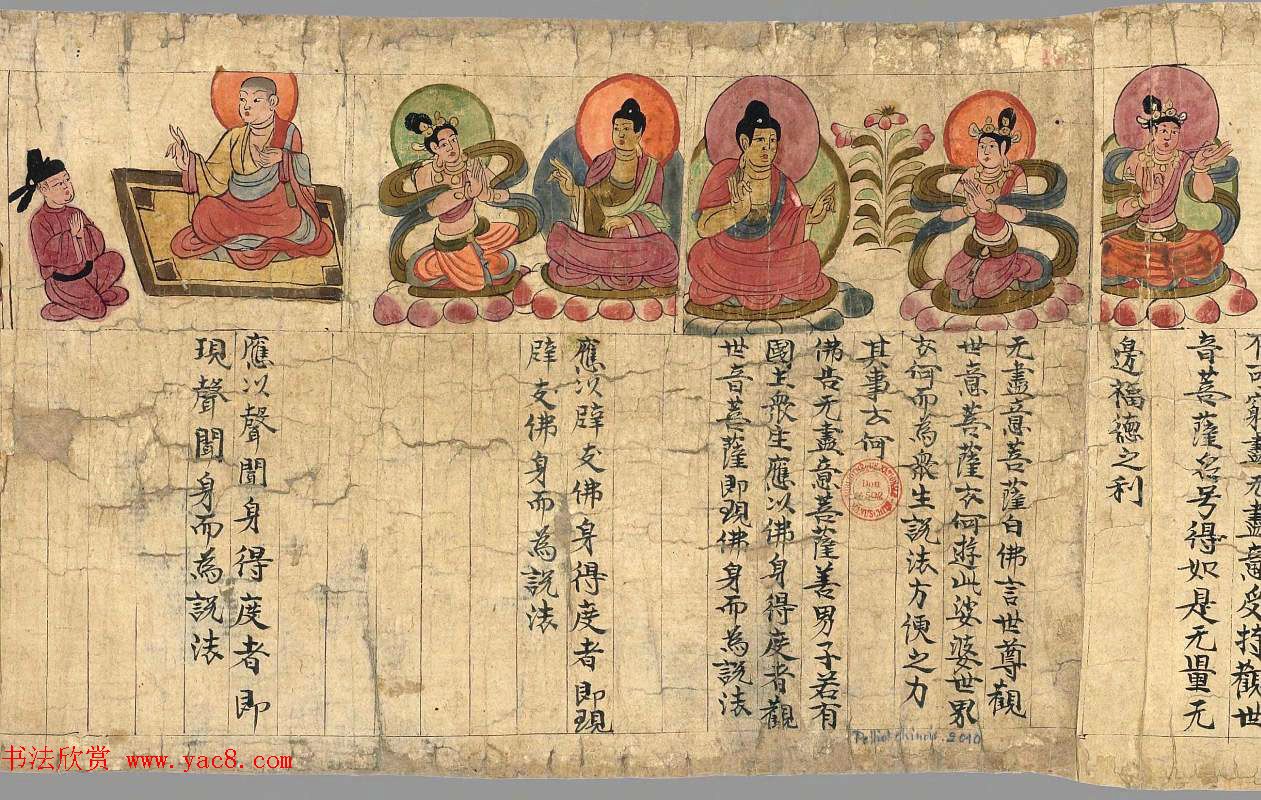 不可窮盡无盡意受持觀世
音菩薩名号得如是无量无
邊福德之利
无盡意菩薩白佛言世尊觀
世音菩薩云何遊此娑婆世界
云何而為衆生說法方便之力
其事云何
佛告无盡意菩薩善男子若有
國土衆生應以佛身得度者觀
世音菩薩即現佛身而為說法
應以辟支佛身得度者即現
辟支佛身而為說法
應以聲聞身得度者即
現聲聞身而為說法
Pelliot chinois 2010
书法欣赏 www.yac8.com